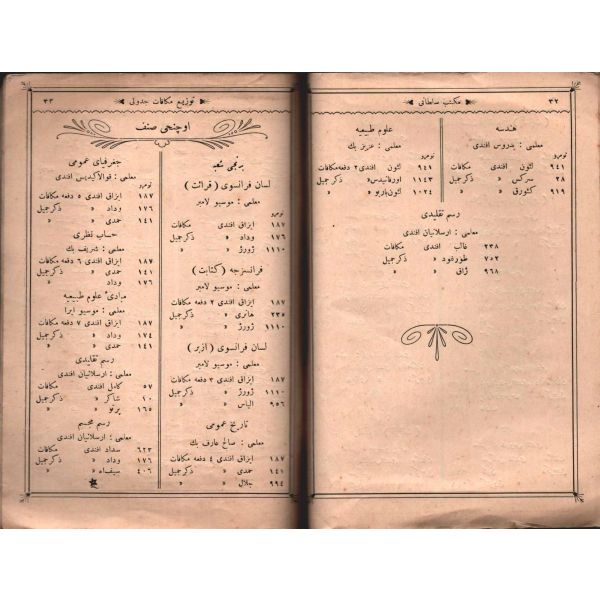 ٣٢ مكتب سلطانى
هندسه
معلمى : پدروس افندى
نومرو
٩٤١ لئون افندى مكافات
٢٨ سركس » ذكرجميل
٩١٩ كئورق » »
علوم طبيعيه
معلمى : عزيز بك
نومرو
٩٤١ لئون افندى ٢ دفعه مكافات
١١٤٣ اورفانيدس » ذكرجميل
١٠٢٤ لئون باربو » »
رسم تقليدى
معلمى : ارسلانيان افندى
٢٣٨ غالب افندى مكافات
٧٥٢ طورغود » ذكرجميل
٩٦٨ ژاق » »
توزيع مكافات جدولى ٣٣
اوچنجى صنف
برنجى شعبه
لسان فرانسوى ( قرائت )
معلمى : موسيو لامبر
نومرو
١٨٧ ايزاق افندى مكافات
١٧٦ وداد » ذكرجميل
١١١٠ ژورژ » »
فرانسزجه ( كتابت )
معلمى : موسيو لامبر
١٨٧ ايزاق افندى ٢ دفعه مكافات
٢٣٥ هانرى » ذكرجميل
١١١٠ ژورژ » »
لسان فرانسوى ( ازبر )
معلمى : موسيو لامبر
١٨٧ ايزاق افندى ٣ دفعه مكافات
١١١٠ ژورژ » ذكرجميل
٩٥٦ الياس » »
تاريخ عمومى
معلمى : صالح عارف بك
١٨٧ ايزاق افندى ٤ دفعه مكافات
١٤١ حمدى » ذكرجميل
٩٩٤ جلال » »
جغرافياى عمومى
معلمى : افندى
نومرو
١٨٧ ايزاق افندى ٥ دفعه مكافات
١٧٦ وداد » ذكرجميل
١٤١ حمدى » »
حساب نظرى
معلمى : شريف بك
١٨٧ ايزاق افندى ٦ دفعه مكافات
١٤١ حمدى » ذكرجميل
١٧٦ وداد » »
مبادئ علوم طبيعيه
معلمى : موسيو ايزا
١٨٧ ايزاق افندى ٧ دفعه مكافات
١٧٤ وداد » ذكرجميل
١٤١ حمدى » »
رسم تقليدى
معلمى : ارسلانيان افندى
٥٧ كامل افندى مكافات
١٠ شاكر » ذكرجميل
١٦٥ پرتو » »
رسم مجسم
معلمى : ارسلانيان افندى
٦٢٣ سداد افندى مكافات
١٧٦ وداد » ذكرجميل
٤٠٦ » »